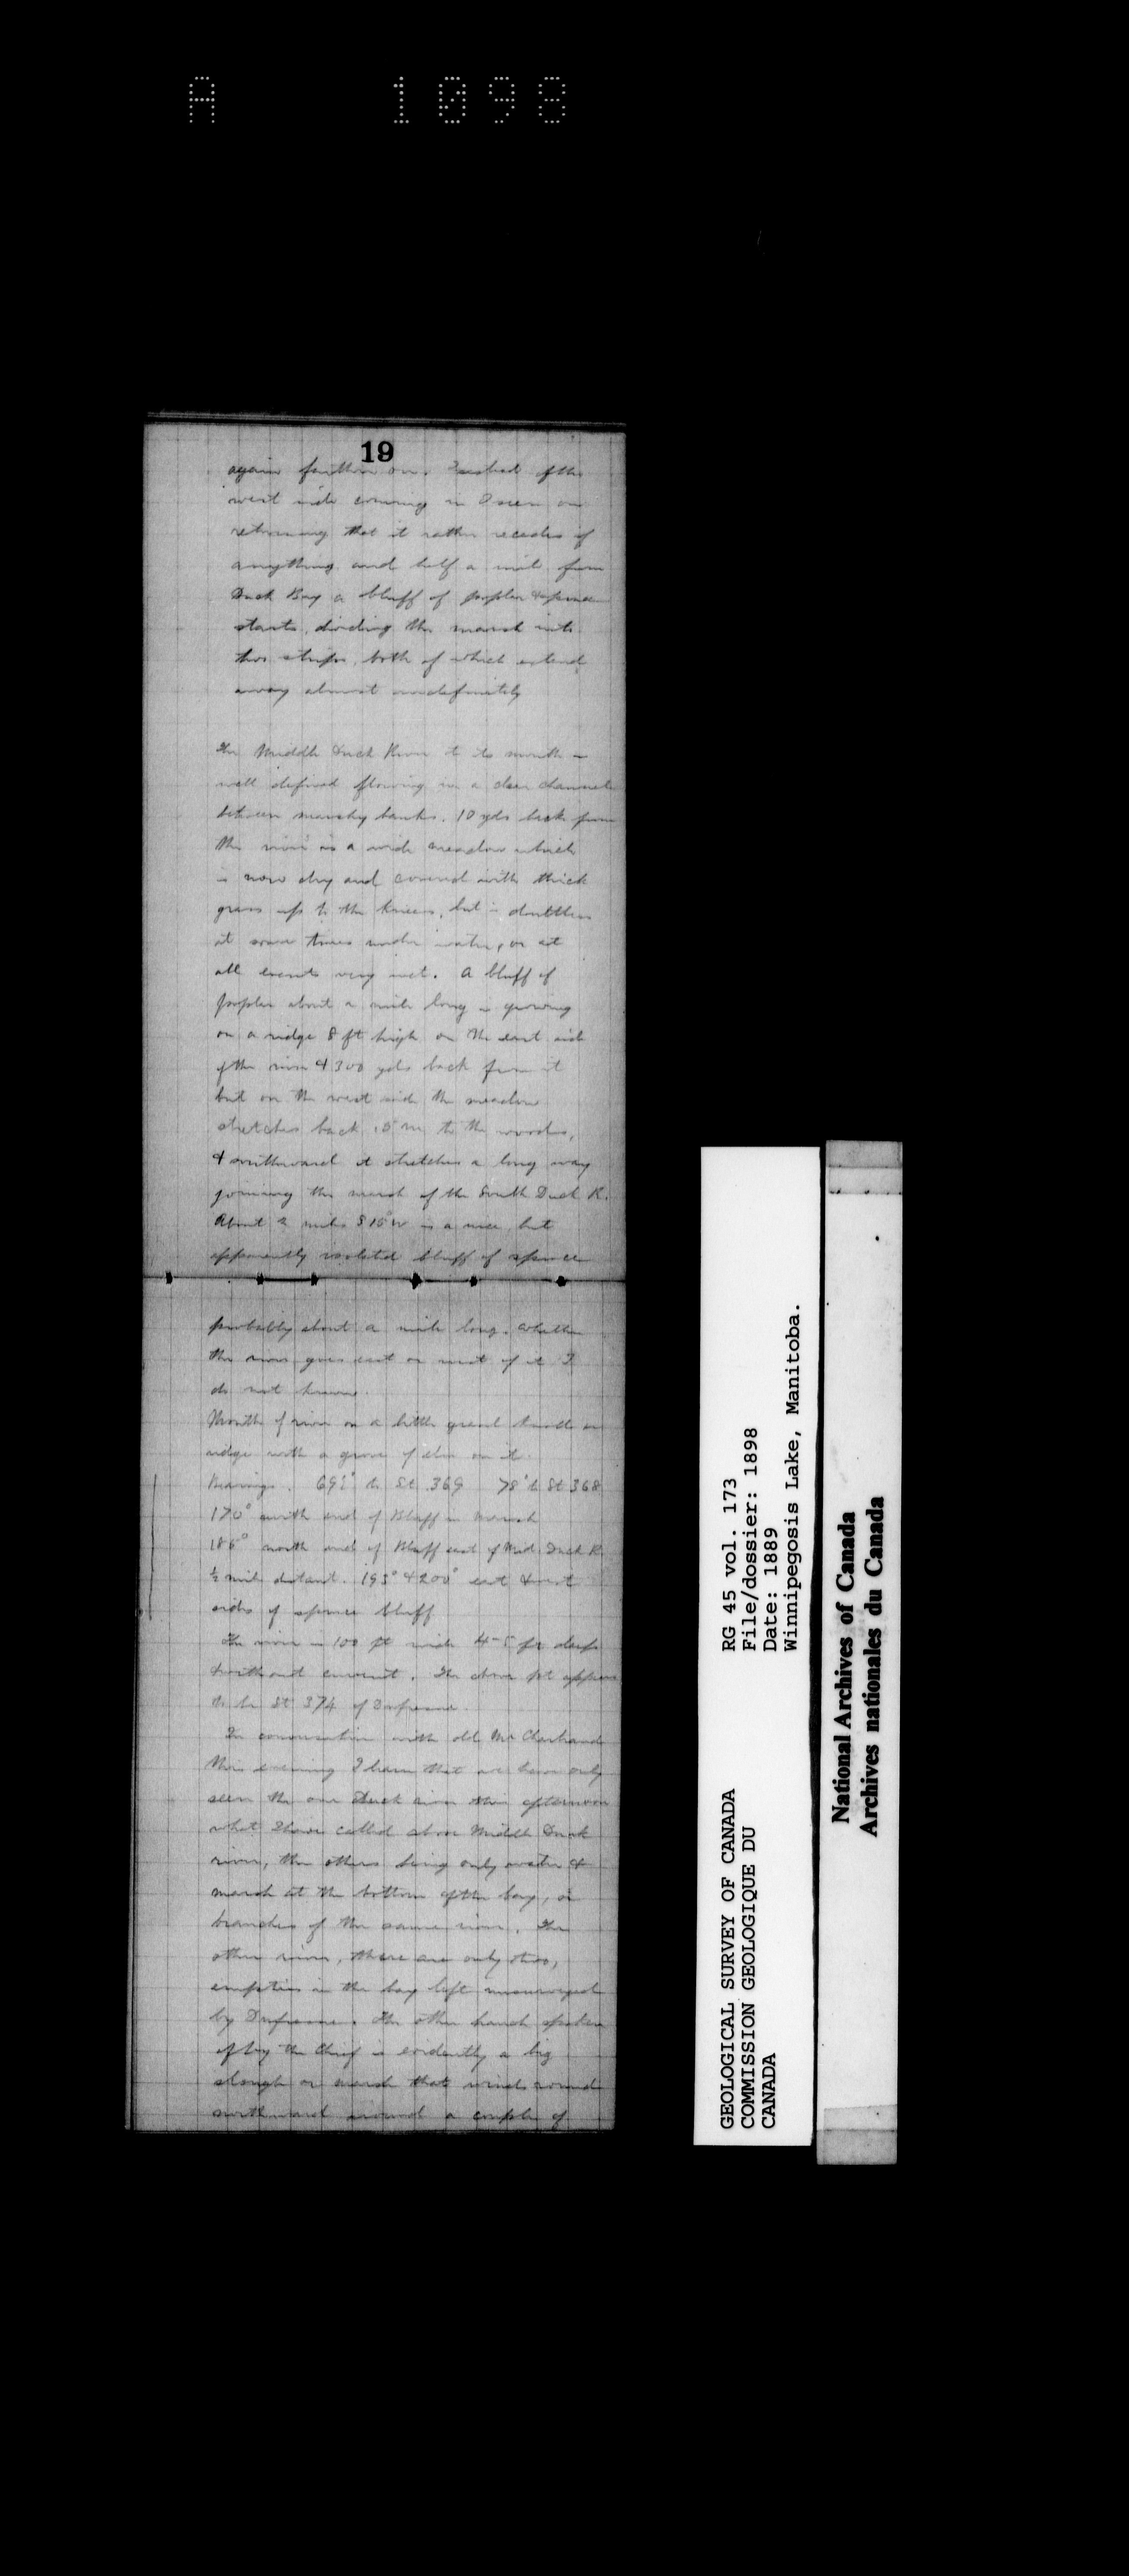 A 1098
19
again farther on. Instead of the
west side coming in I seen on
returning that it rather recedes if
anything and half a mile from
Duck Bay a bluff of poplar & spruce
starts, dividing the marsh into
two strips, both of which extend
away almost indefinitely
The Middle Duck River at its mouth is
well defined flowing in a clear channel
between marshy banks. 10 yds back from
the river is a wide meadow which
is now dry and covered with thick
grass up to the knees, but is doubtless
at some times under water, or at
all events very wet. A bluff of
poplar about a mile long is growing
on a ridge 8 ft high on the east side
of the river & 300 yds back from it
but on the west side the meadow
stretches back .5 m to the woods,
& southward it stretches a long way
joining the marsh of the South Duck R.
About 2 miles S 10° W is a nice but
apparently isolated bluff of spruce
probably about a mile long. Whether
the river goes east or west of it I
do not know.
Mouth of river on a little gravel knoll or
ridge with a grove of elm on it.
Bearings. to St 369 78° to St 368
170° north end of Bluff in marsh
186° north end of Bluff east of Mid. Duck R.
½ mile distant. 193° & 200° east & west
sides of spruce bluff
The river is 100 ft wide 4-5 ft deep
& without current. The above pt appears
to be St 374 of Dufresne.
In conversation with old Mr
this evening I learn that we have only
seen the one Duck river this afternoon
what I have called above Middle Duck
river, the others being only water &
marsh at the bottom of the bay, or
branches of the same river. The
other river, there are only two,
empties in the bay left unsurveyed
by Dufresne. The other branch spoken
of by the Chief is evidently a big
slough or marsh that winds round
northward around a couple of
GEOLOGICAL SURVEY OF CANADA
COMMISSION GEOLOGIQUE DU
CANADA
RG 45 vol. 173
File/dossier: 1898
Date: 1889
Winnipegosis Lake, Manitoba.
National Archives of Canada
Archives nationales du Canada